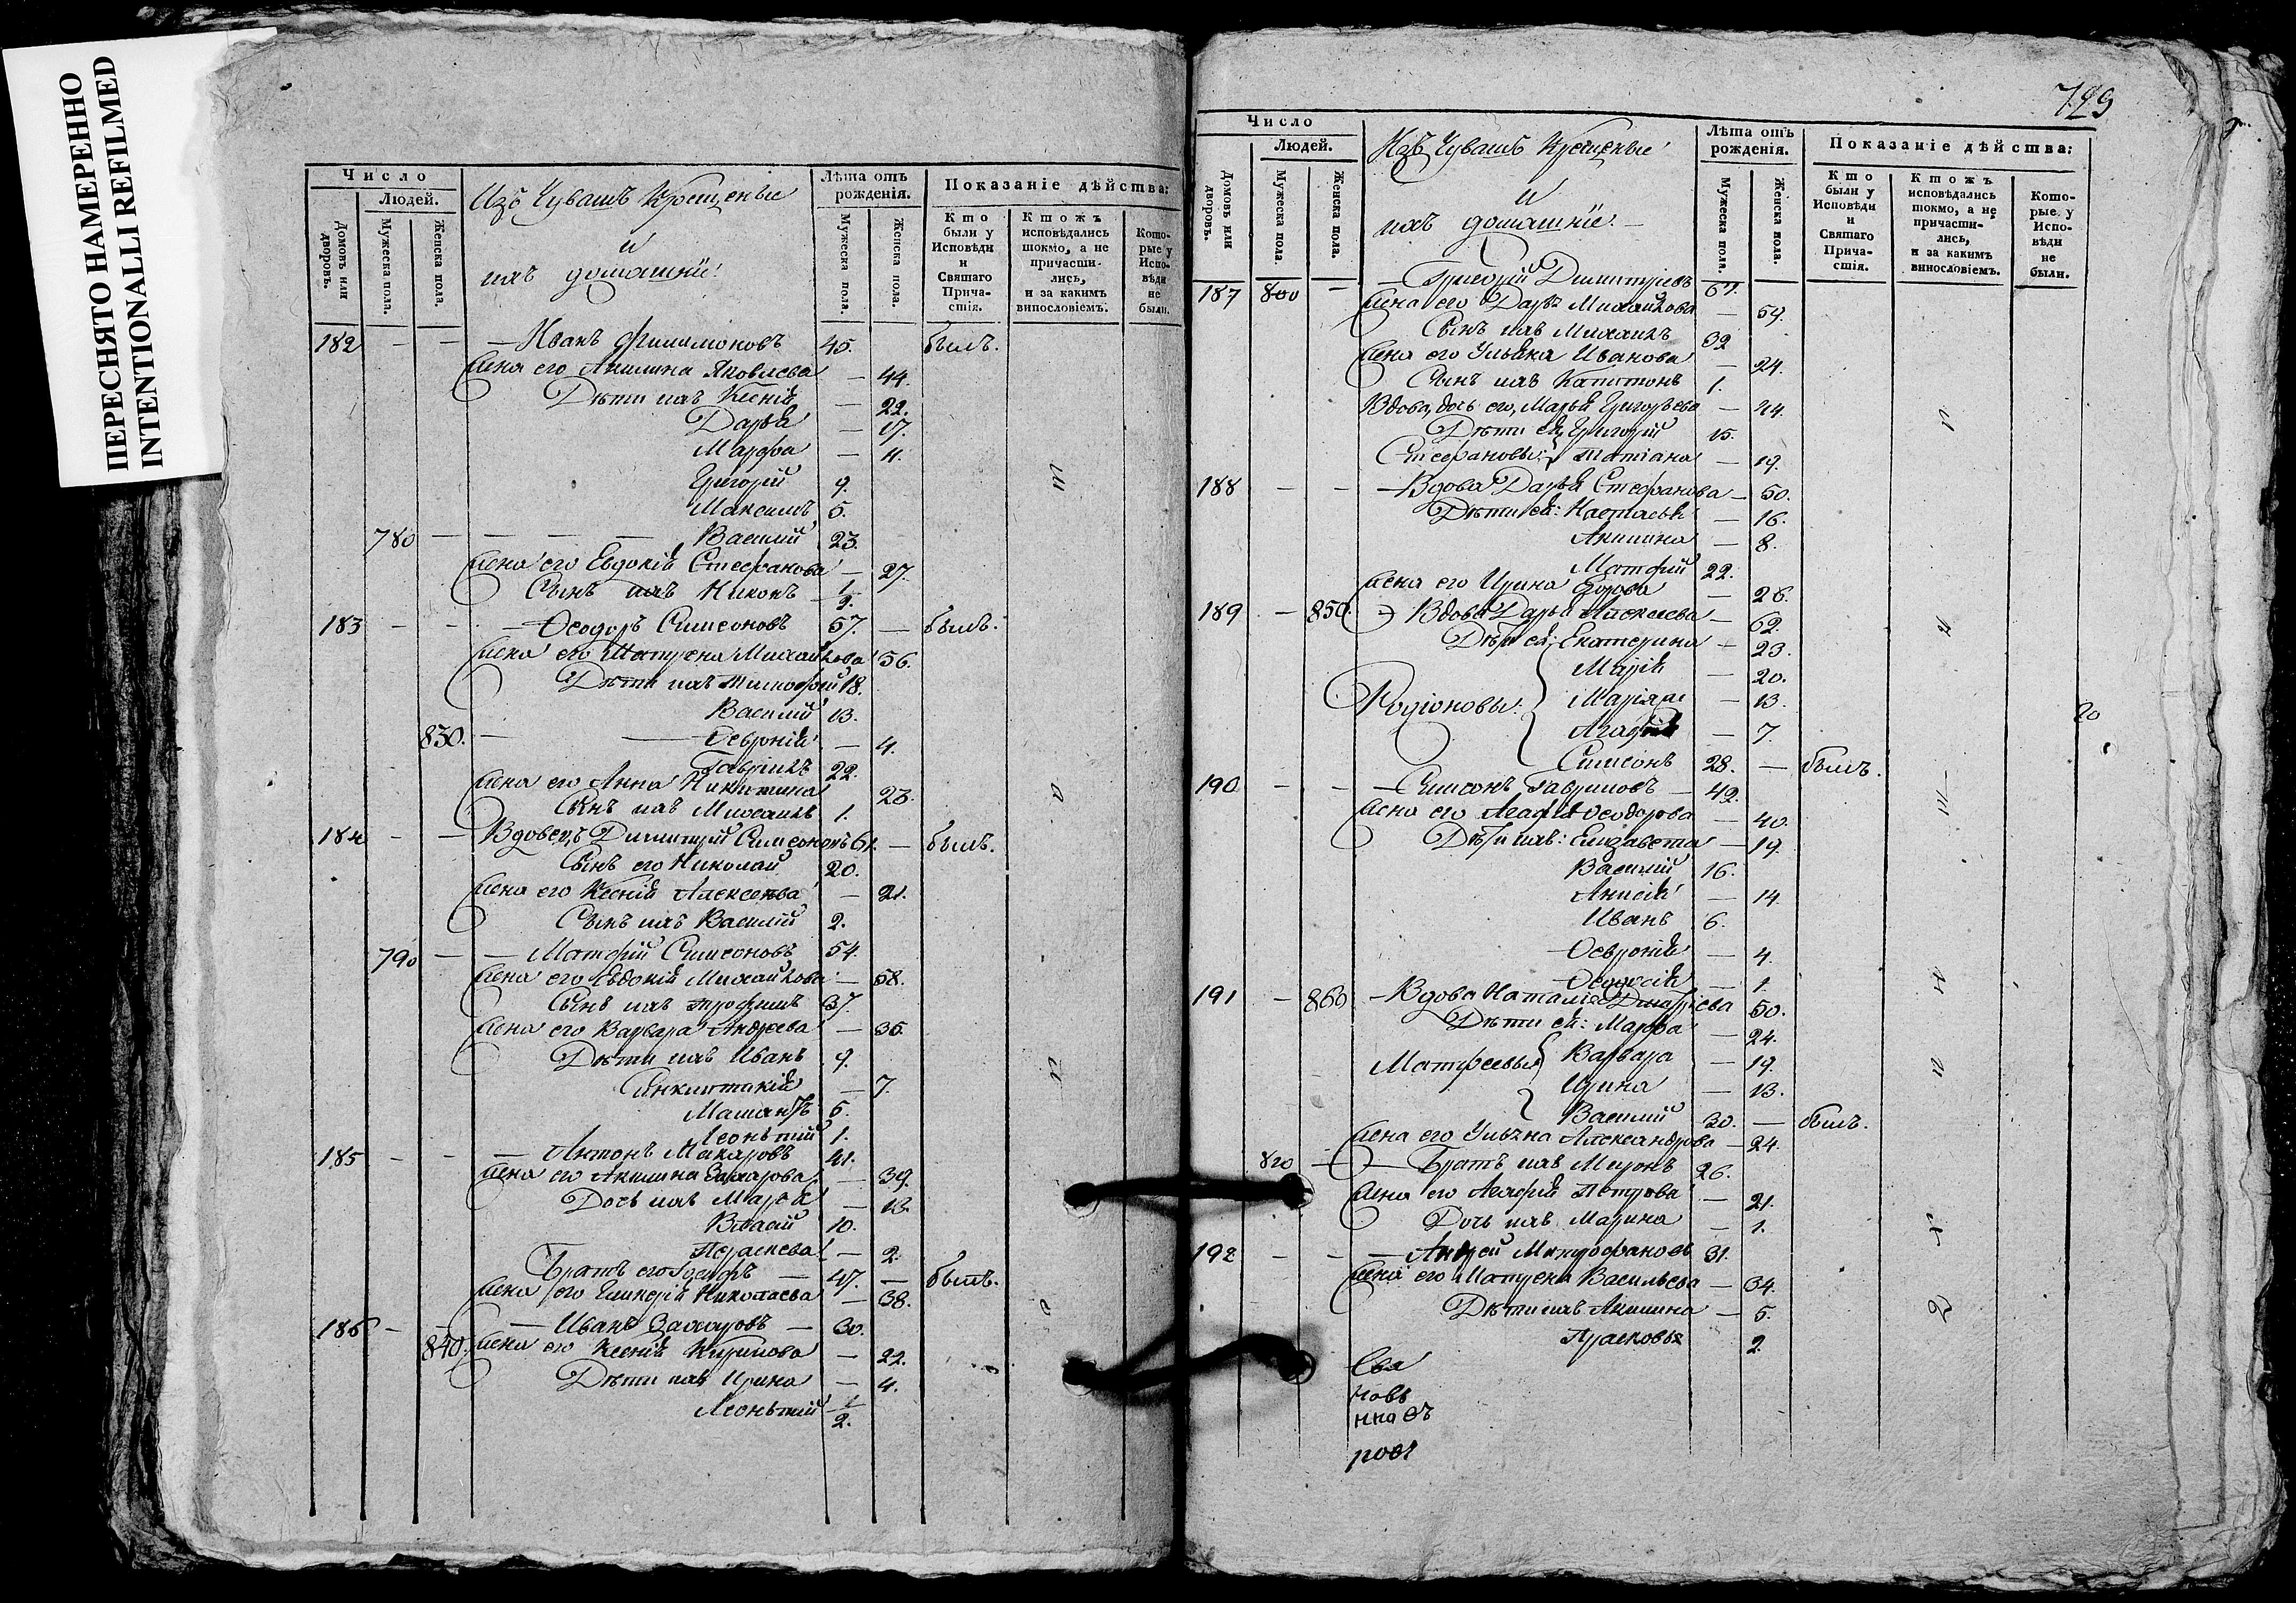 ПЕРЕСНЯТО НАМЕРЕННО
INTENTIONALLI REFILMED
Число
Людей.
Домовъ или дворовъ.
Мужеска пола.
Женска пола.
Изъ Чувашъ Крещеные
и
ихъ домашніи
Лѣта отъ рожденія.
Мужеска пола.
Женска пола.
Показаніе дѣйства:
Кто были у Исповѣди и Святаго Причастія.
Ктожъ исповѣдались токмо, а не причастились, и за какимъ винословіемъ.
Которые у Исповѣди не были.
182 — — — Иванъ Филимоновъ 45. былъ.
Жена его Акилина Яковлева — 44.
Дѣти ихъ Ксенія — 22.
Дарья — 17.
Марфа — 11.
Григорій 9.
Максимъ 5.
780 — — — Василий 23.
Жена его Евдокія Стефанова — 27.
Сынъ ихъ Никонъ 1/2.
183 — — — Ѳеодоръ Симеоновъ 57. — былъ.
Жена его Матрена Михайлова 56.
Дѣти ихъ Тимофей 18.
Василий 13.
830. — — Ѳевронія — 4.
Гаврилъ 22.
Жена его Анна Никитина 23.
Сынъ ихъ Михаилъ 1.
184 — — Вдовецъ Димитрий Симеоновъ 61. — былъ.
Сынъ его Николай 20.
Жена его Ксенія Алексеева — 21.
Сынъ ихъ Василий 2.
790 — — Матфій Симеоновъ 54.
Жена его Евдокія Михайлова — 58.
Сынъ ихъ Трофимъ 37.
Жена его Варвара Андреева — 35
Дѣти ихъ Иванъ 9.
— 7.
5.
Леонтий 1.
185 — — — Антонъ Макаровъ 41.
Жена его Акилина Захарова — 39.
Дочь ихъ Марья — 13.
Власий 10.
Параскева — 2.
Братъ его — 47. — былъ.
Жена его Николаева — 38.
186 — — — Иванъ Захаровъ — 30.
840. Жена его Ксенія Кирилова — 22.
Дѣти ихъ Ирина — 4.
Леонтий 1/2.
729
Число
Людей.
Домовъ или дворовъ.
Мужеска пола.
Женска пола.
Изъ Чувашъ Крещеные
и
ихъ домашніе. —
Лѣта отъ рожденія.
Мужеска пола.
Женска пола.
Показаніе дѣйства:
Кто были у Исповѣди и Святаго Причастія.
Ктожъ исповѣдались токмо, а не причастились, и за какимъ винословіемъ.
Которые у Исповѣди не были.
187 800 — — Григорій Димитриевъ 61.
Жена его Дарья Михайлова — 59.
Сынъ ихъ Михаилъ 32
Жена его Ульяна Иванова — 24.
Сынъ ихъ Капитонъ 1.
Вдова, дочь его, Марья Григорьева — 44.
Дѣти ея, Григорій 15.
Стефановы: Татіана — 19.
188 — — — Вдова Дарья Стефанова — 50.
Дѣти ея: Настасья — 16.
Акилина — 8.
Матфий 22.
Жена его Ирина — 26.
189 — 850. — Вдова Дарья Алексеева — 62.
Дѣти ея: Екатерина — 23.
Марія — 20.
Родіоновы: — 13.
Агафія — 7.
Симеонъ 28. — былъ.
190 — — — Симеонъ Гавриловъ — 42.
Жена его Агафія Ѳеодорова — 40.
Дѣти ихъ: Елизавета — 19.
Василий 16.
Анисія — 14.
Иванъ 6.
Ѳевронія — 4.
Ѳеодосія — 1.
191 — 860 — Вдова Наталія 50.
Дѣти ея: Марфа — 24.
Матфеевы Варвара — 19.
Ирина — 13.
Василий 30. — былъ.
Жена его Ульяна Александрова — 24.
810 — — Братъ ихъ Миронъ 26.
Жена его Агафія Петрова — 21.
Дочь ихъ Марина — 1.
192 — — — Андрей Митрофановъ 31.
Жена его Матрена Васильева — 34.
Дѣти ихъ Акилина — 5.
Прасковья 2.
Свя